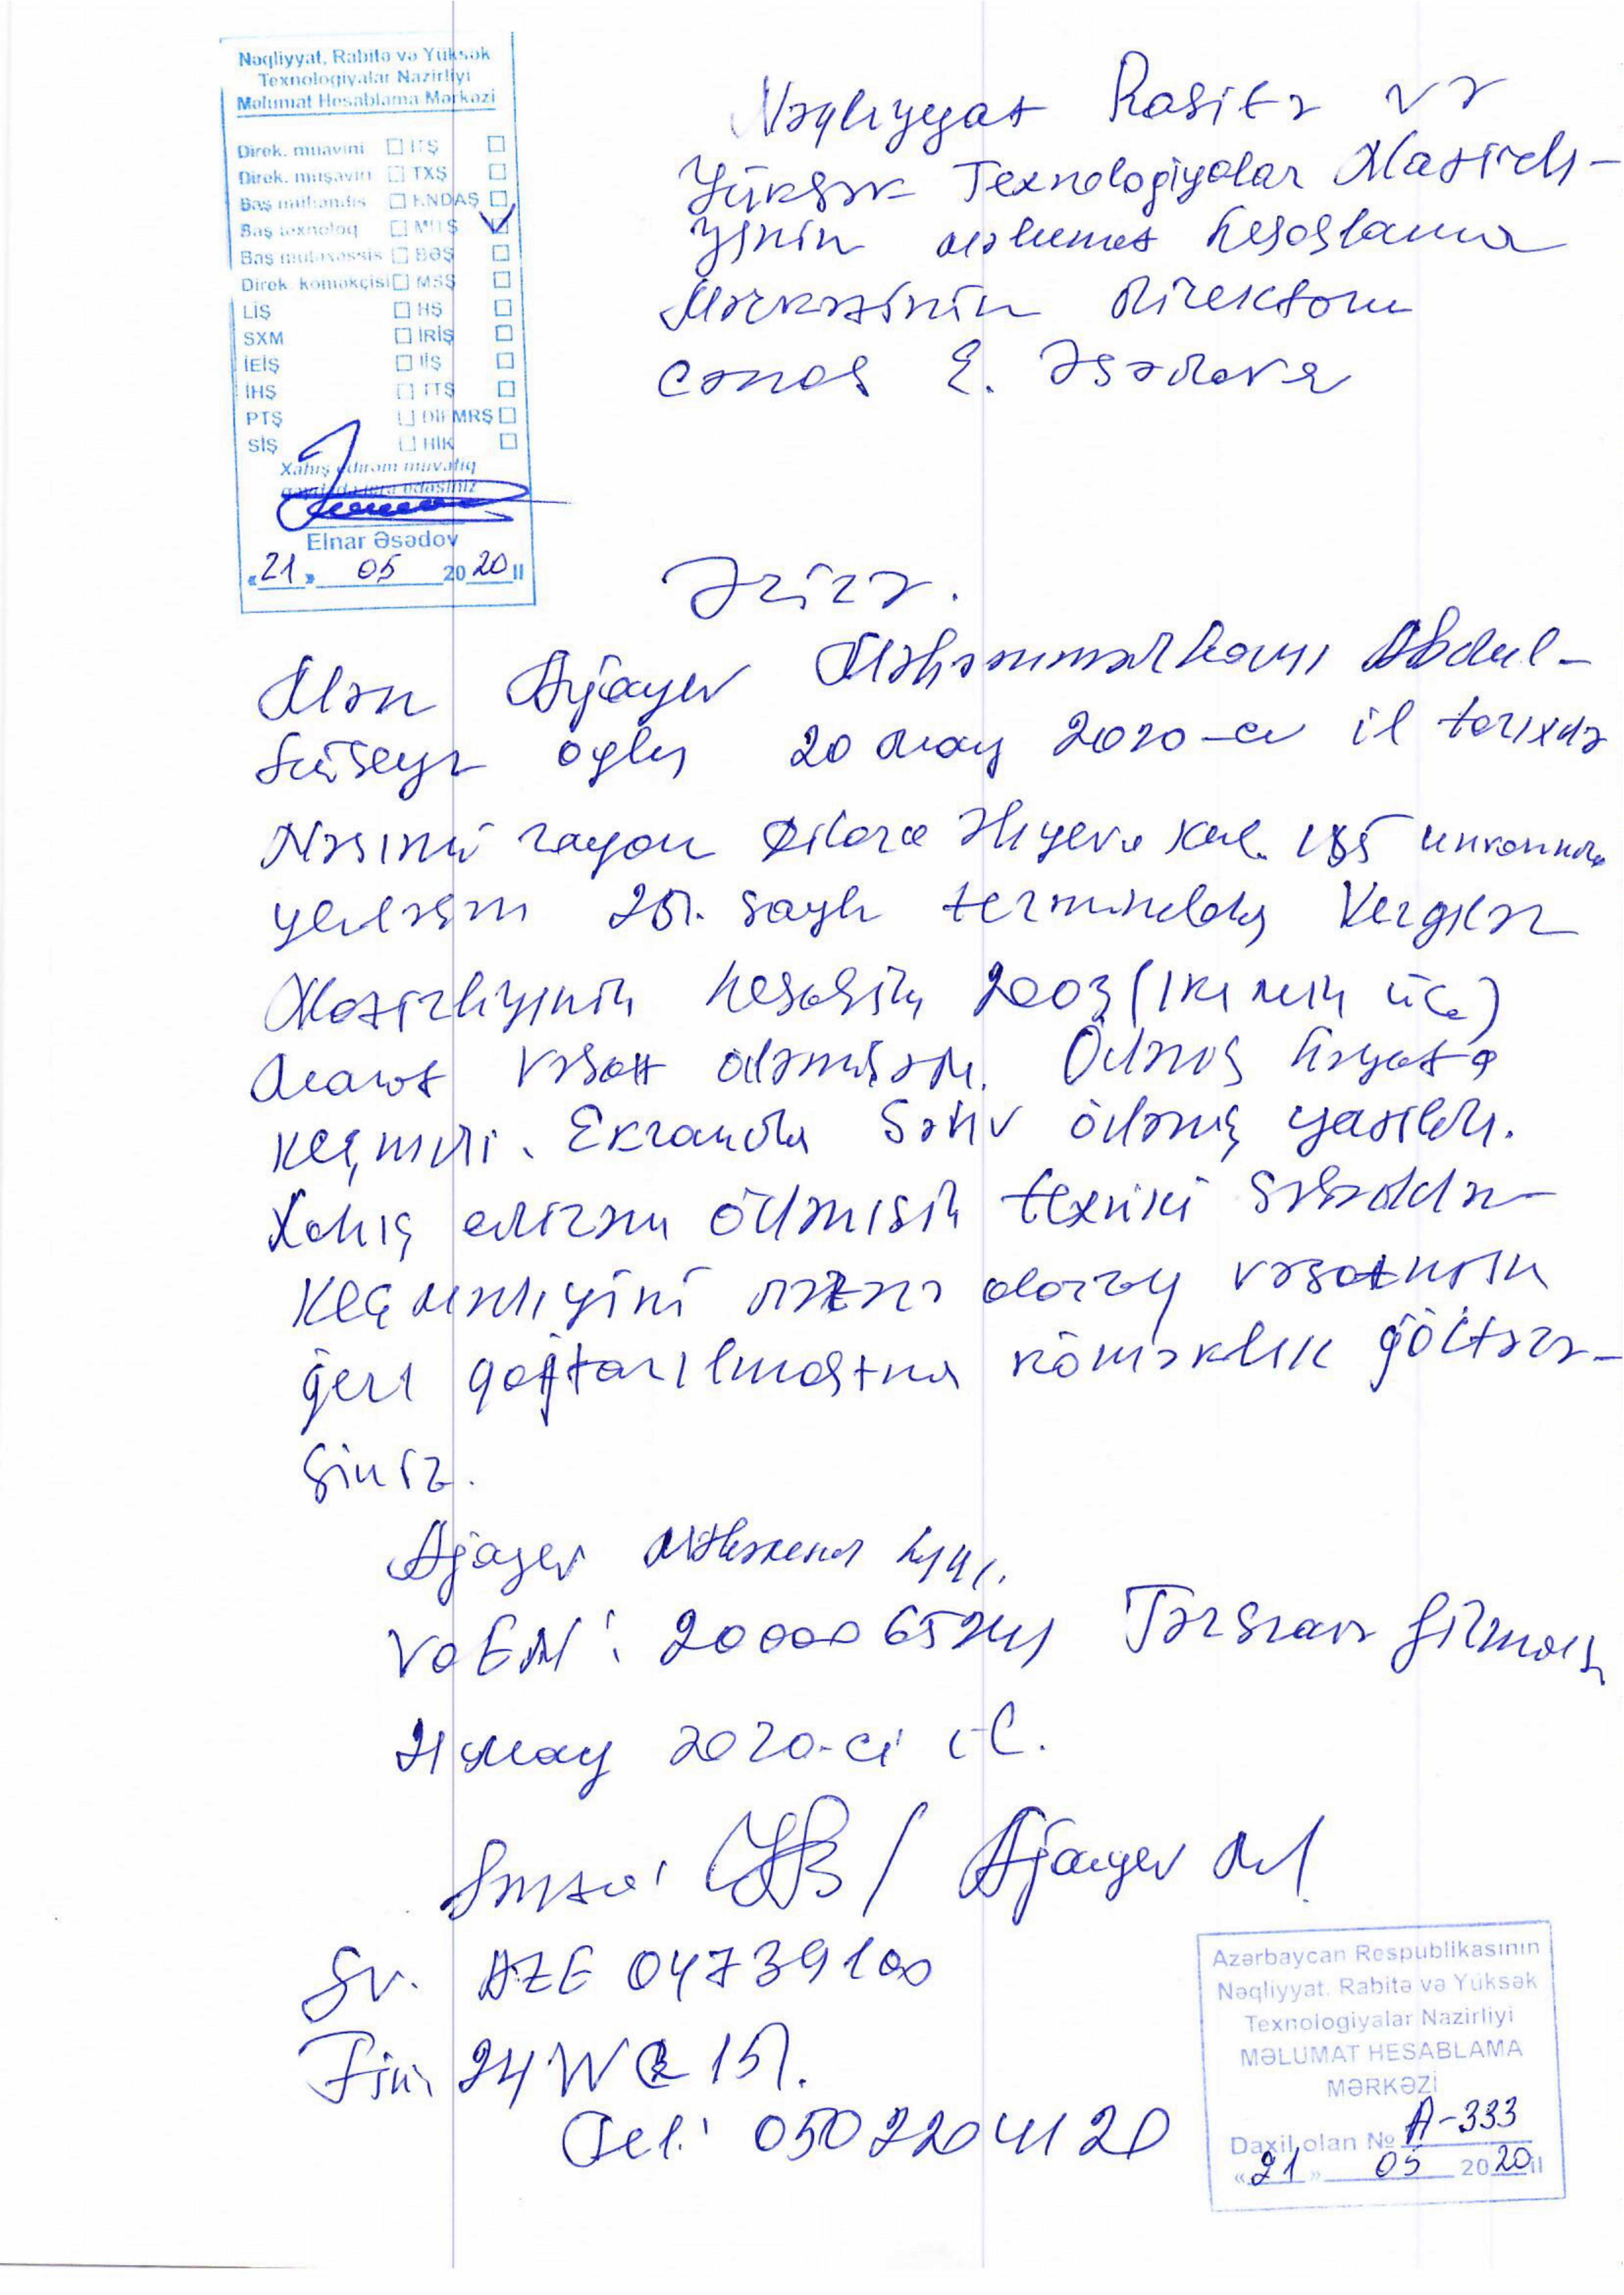 Nəqliyyat, Rabitə və Yüksək
Texnologiyalar Nazirliyi
Məlumat Hesablama Mərkəzi
Direk. müavini İTŞ
Direk. müşaviri TXŞ
Baş mühəndis ENDAŞ
Baş texnoloq MİTŞ
Baş mütəxəssis BƏŞ
Direk. köməkçisi MSŞ
LİŞ HŞ
SXM İRİŞ
İEİŞ İİŞ
İHŞ İTŞ
PTŞ MRŞ
SİŞ HİK
Xahiş edirəm müvafiq
qaydada icra edəsiniz
Elnar Əsədov
«21» 05 2020 il
Nəqliyyat Rabitə və
Yüksək Texnologiyalar Nazirli-
yinin məlumat hesablama
Mərkəzinin direktoru
cənab E. Əsədova
Ərizə.
Mən Ağayev Məhəmməd Abdul-
hüseyn oğlu 20 may 2020-ci il tarixdə
Nəsimi rayon Dilarə Əliyeva küç. ünvanında
yerləşən 251 saylı terminaldan Vergilər
Nazirliyinin hesabına 2003 (iki min üç)
manat vəsait ödəmişəm. Ödəniş həyata
keçmədi. Ekranda Səhv ödəniş yazıldı.
Xahiş edirəm ödənişin texniki səbəbdən
keçmədiyini nəzərə alaraq vəsaitin
geri qaytarılmasına köməklik göstərə-
siniz.
Ağayev Məhəmməd
VÖEN: firması
21 may 2020-ci il.
İmza: / Ağayev M
Şv. AZE 04739100
Fin
Tel: 050 220 41 20
Azərbaycan Respublikasının
Nəqliyyat, Rabitə və Yüksək
Texnologiyalar Nazirliyi
MƏLUMAT HESABLAMA
MƏRKƏZİ
Daxil olan № A-333
«21» 05 2020 il